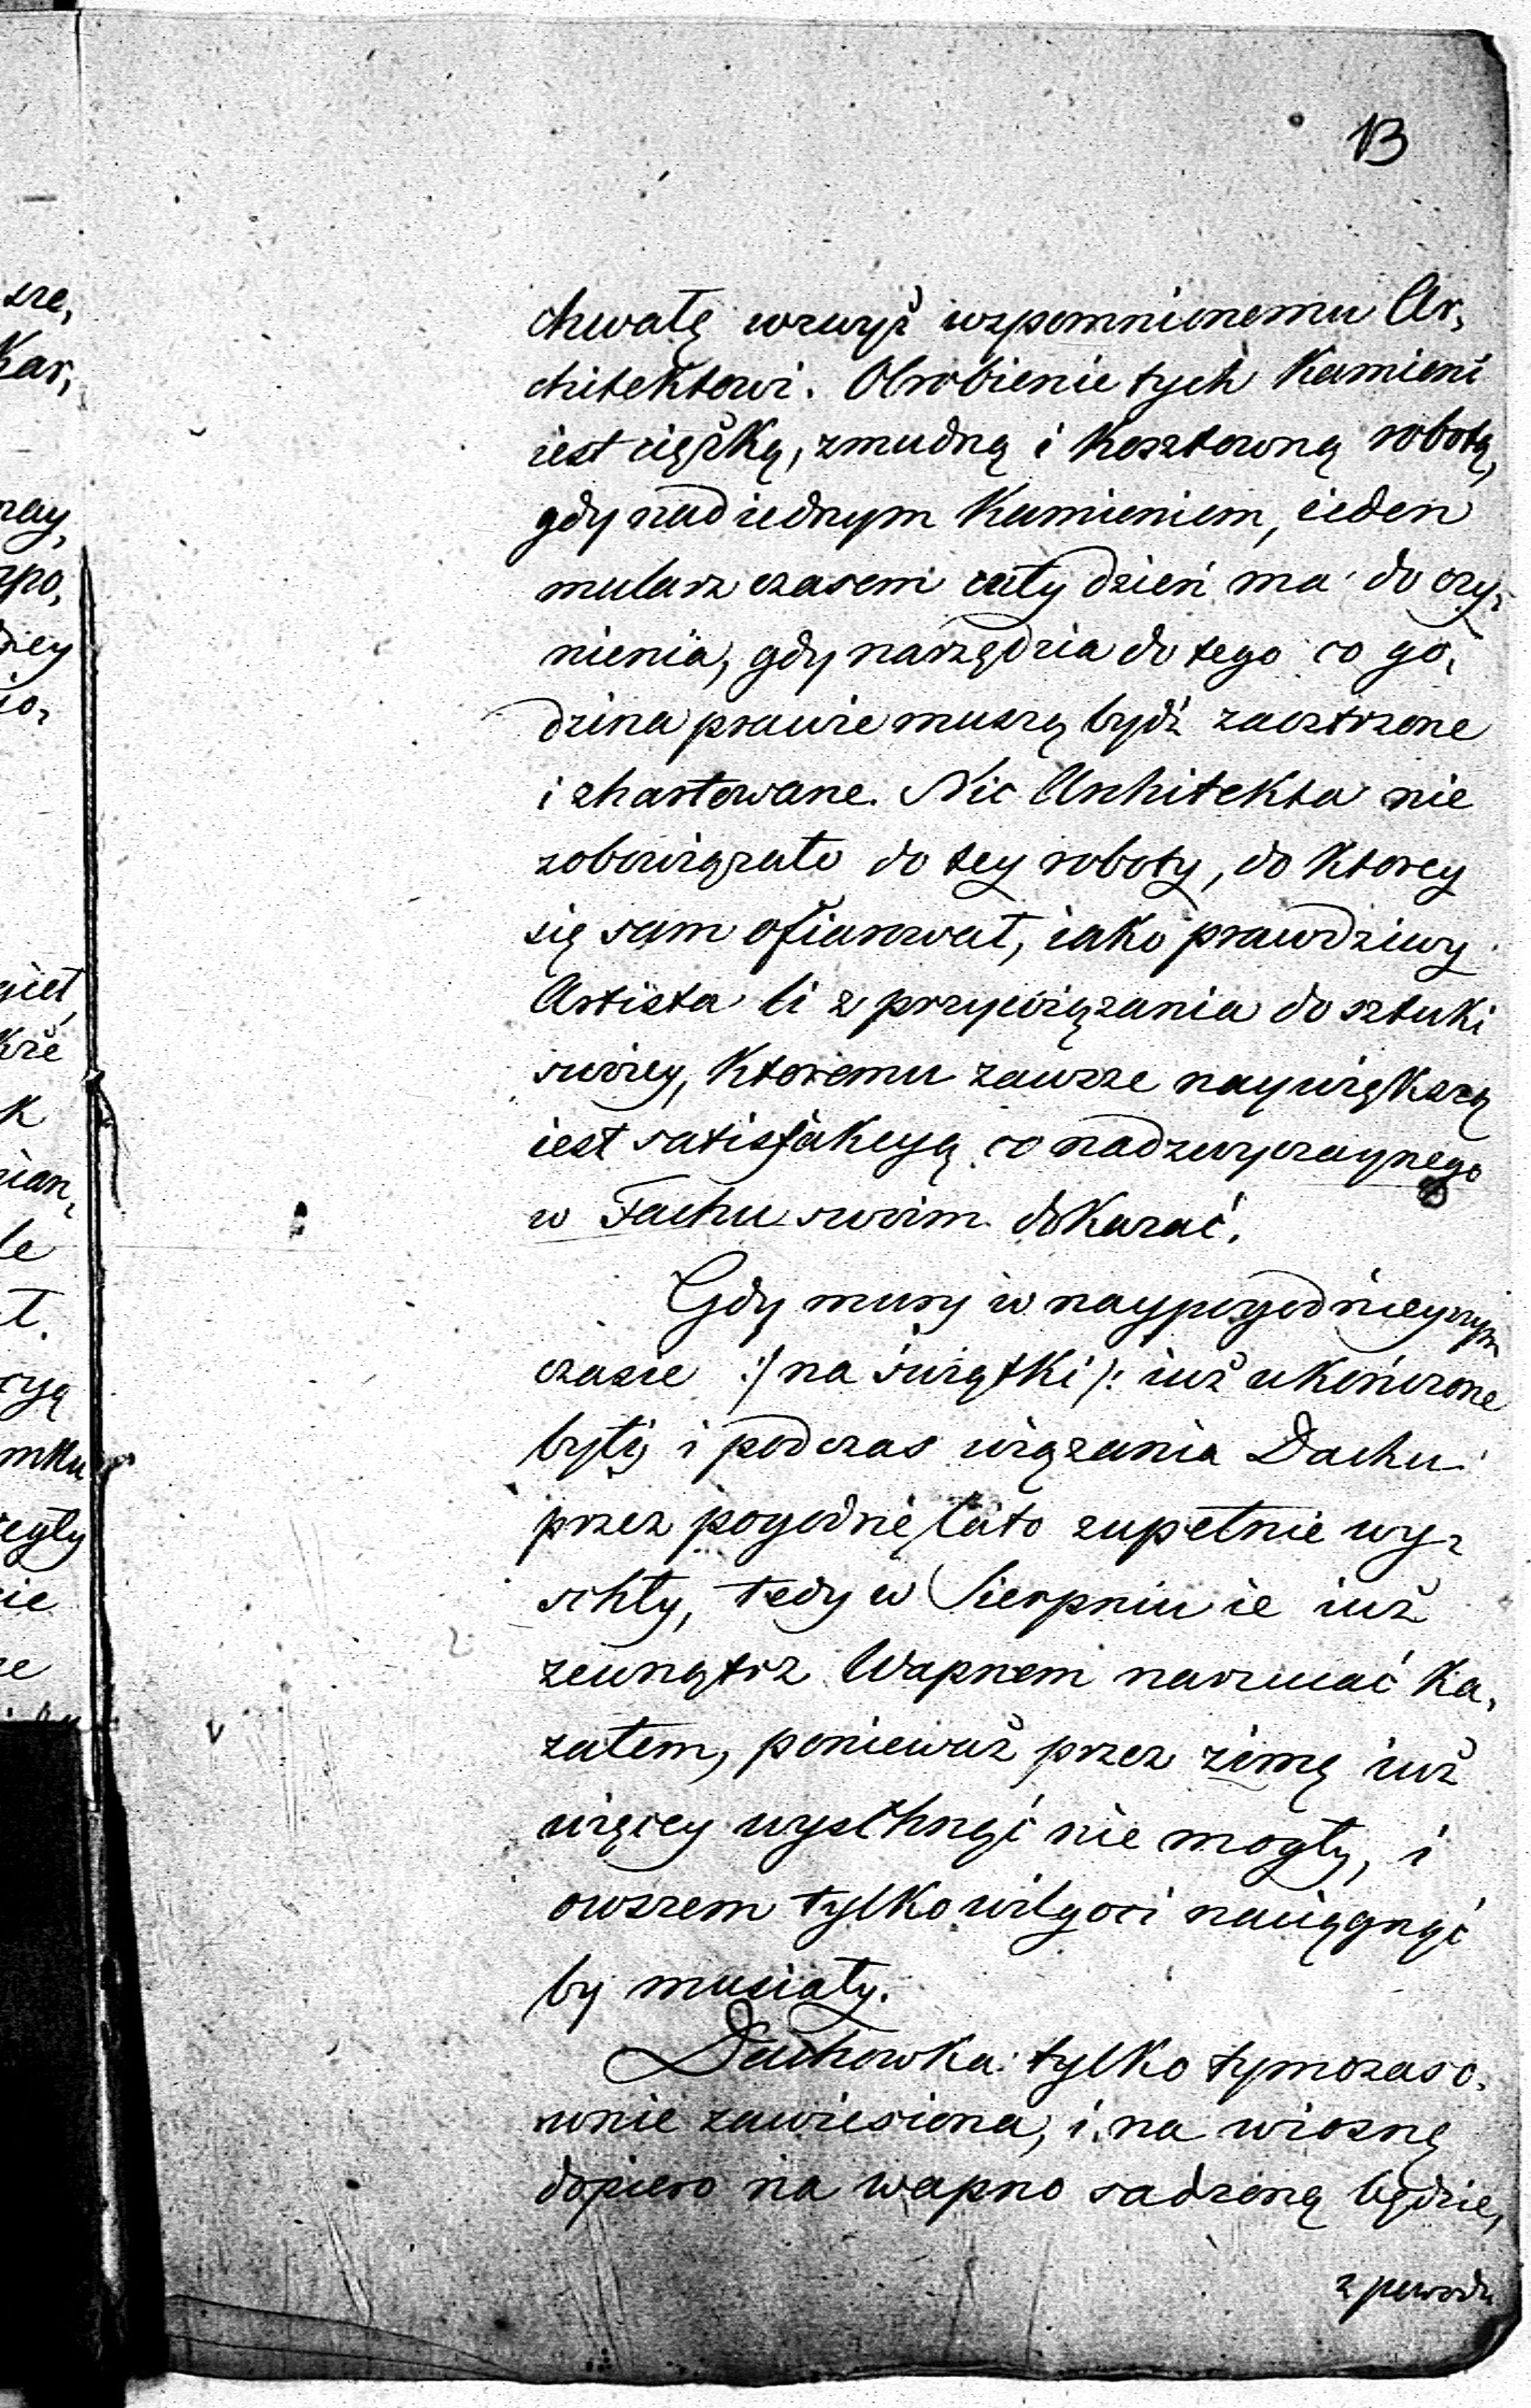 13
chwałę wzwyż wspomnionemu Ar,
chitektowi. Obrobienie tych Kamieni
iest ciężką, zmudną i Kosztowną robotą,
gdy nad iednym Kamieniem, ieden
mularz czasem cały dzień ma do czy,
nienia, gdy narzędzia do tego co go,
dzina prawie muszą bydź zaostrzone
i zhartowane. Nic Architekta nie
zobowiązało do tey roboty, do Ktorey
się sam ofiarował, iako prawdziwy
Artista li z przywiązania do sztuki
swoiey, Ktoremu zawsze naywiększą
iest satisfakcyą co nadzwyczaynego
w Fachu swoim dokazać.
Gdy mury w naypogodnieyszym
czasie :/ na świątki /: iuż ukończone
były i podczas wiązania Dachu
przez pogodnie lato zupełnie wy,
schły, tedy w Sierpniu ie iuż
zewnątrz Wapnem narzucać Ka,
załem, ponieważ przez zimę iuż
więcey wyschnąć nie mogły, i
owszem tylko wilgoci naciągnąć
by musiały.
Dachowka tylko tymczaso,
wnie zawiesiona, i na wiosnę
dopiero na wapno sadzoną będzie,
z powodu
sze,
Kar,
ray,
spo,
iey
io,
Kże
k
le
ł.
cyą
mku
cegły
cie